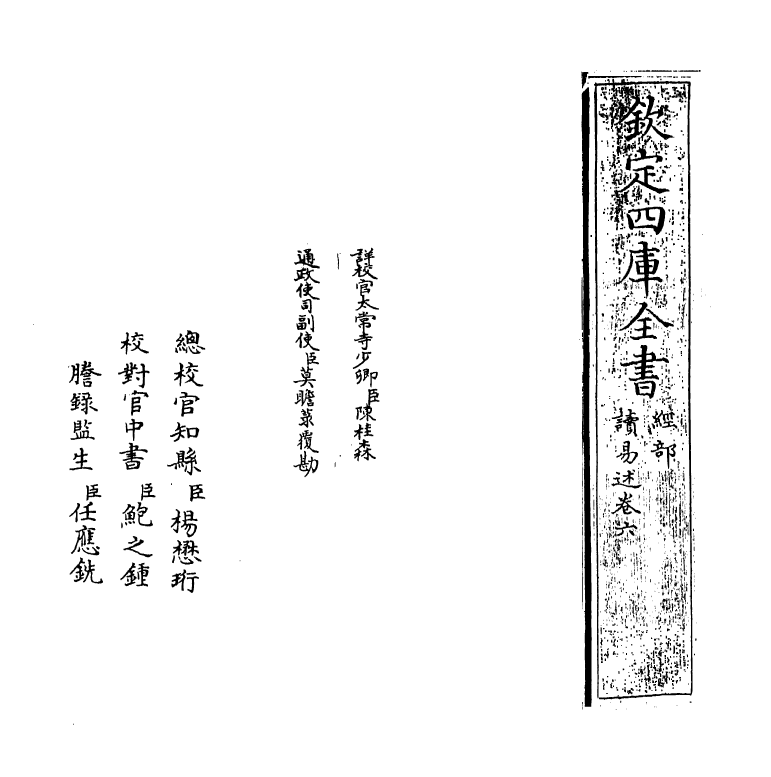 欽定四庫全書
經部
讀易述卷六
詳校官太常寺少卿臣陳桂森
通政使司副使臣莫瞻菉覆勘
總校官知縣臣楊懋珩
校對官中書臣鮑之鍾
謄錄監生臣任應銑